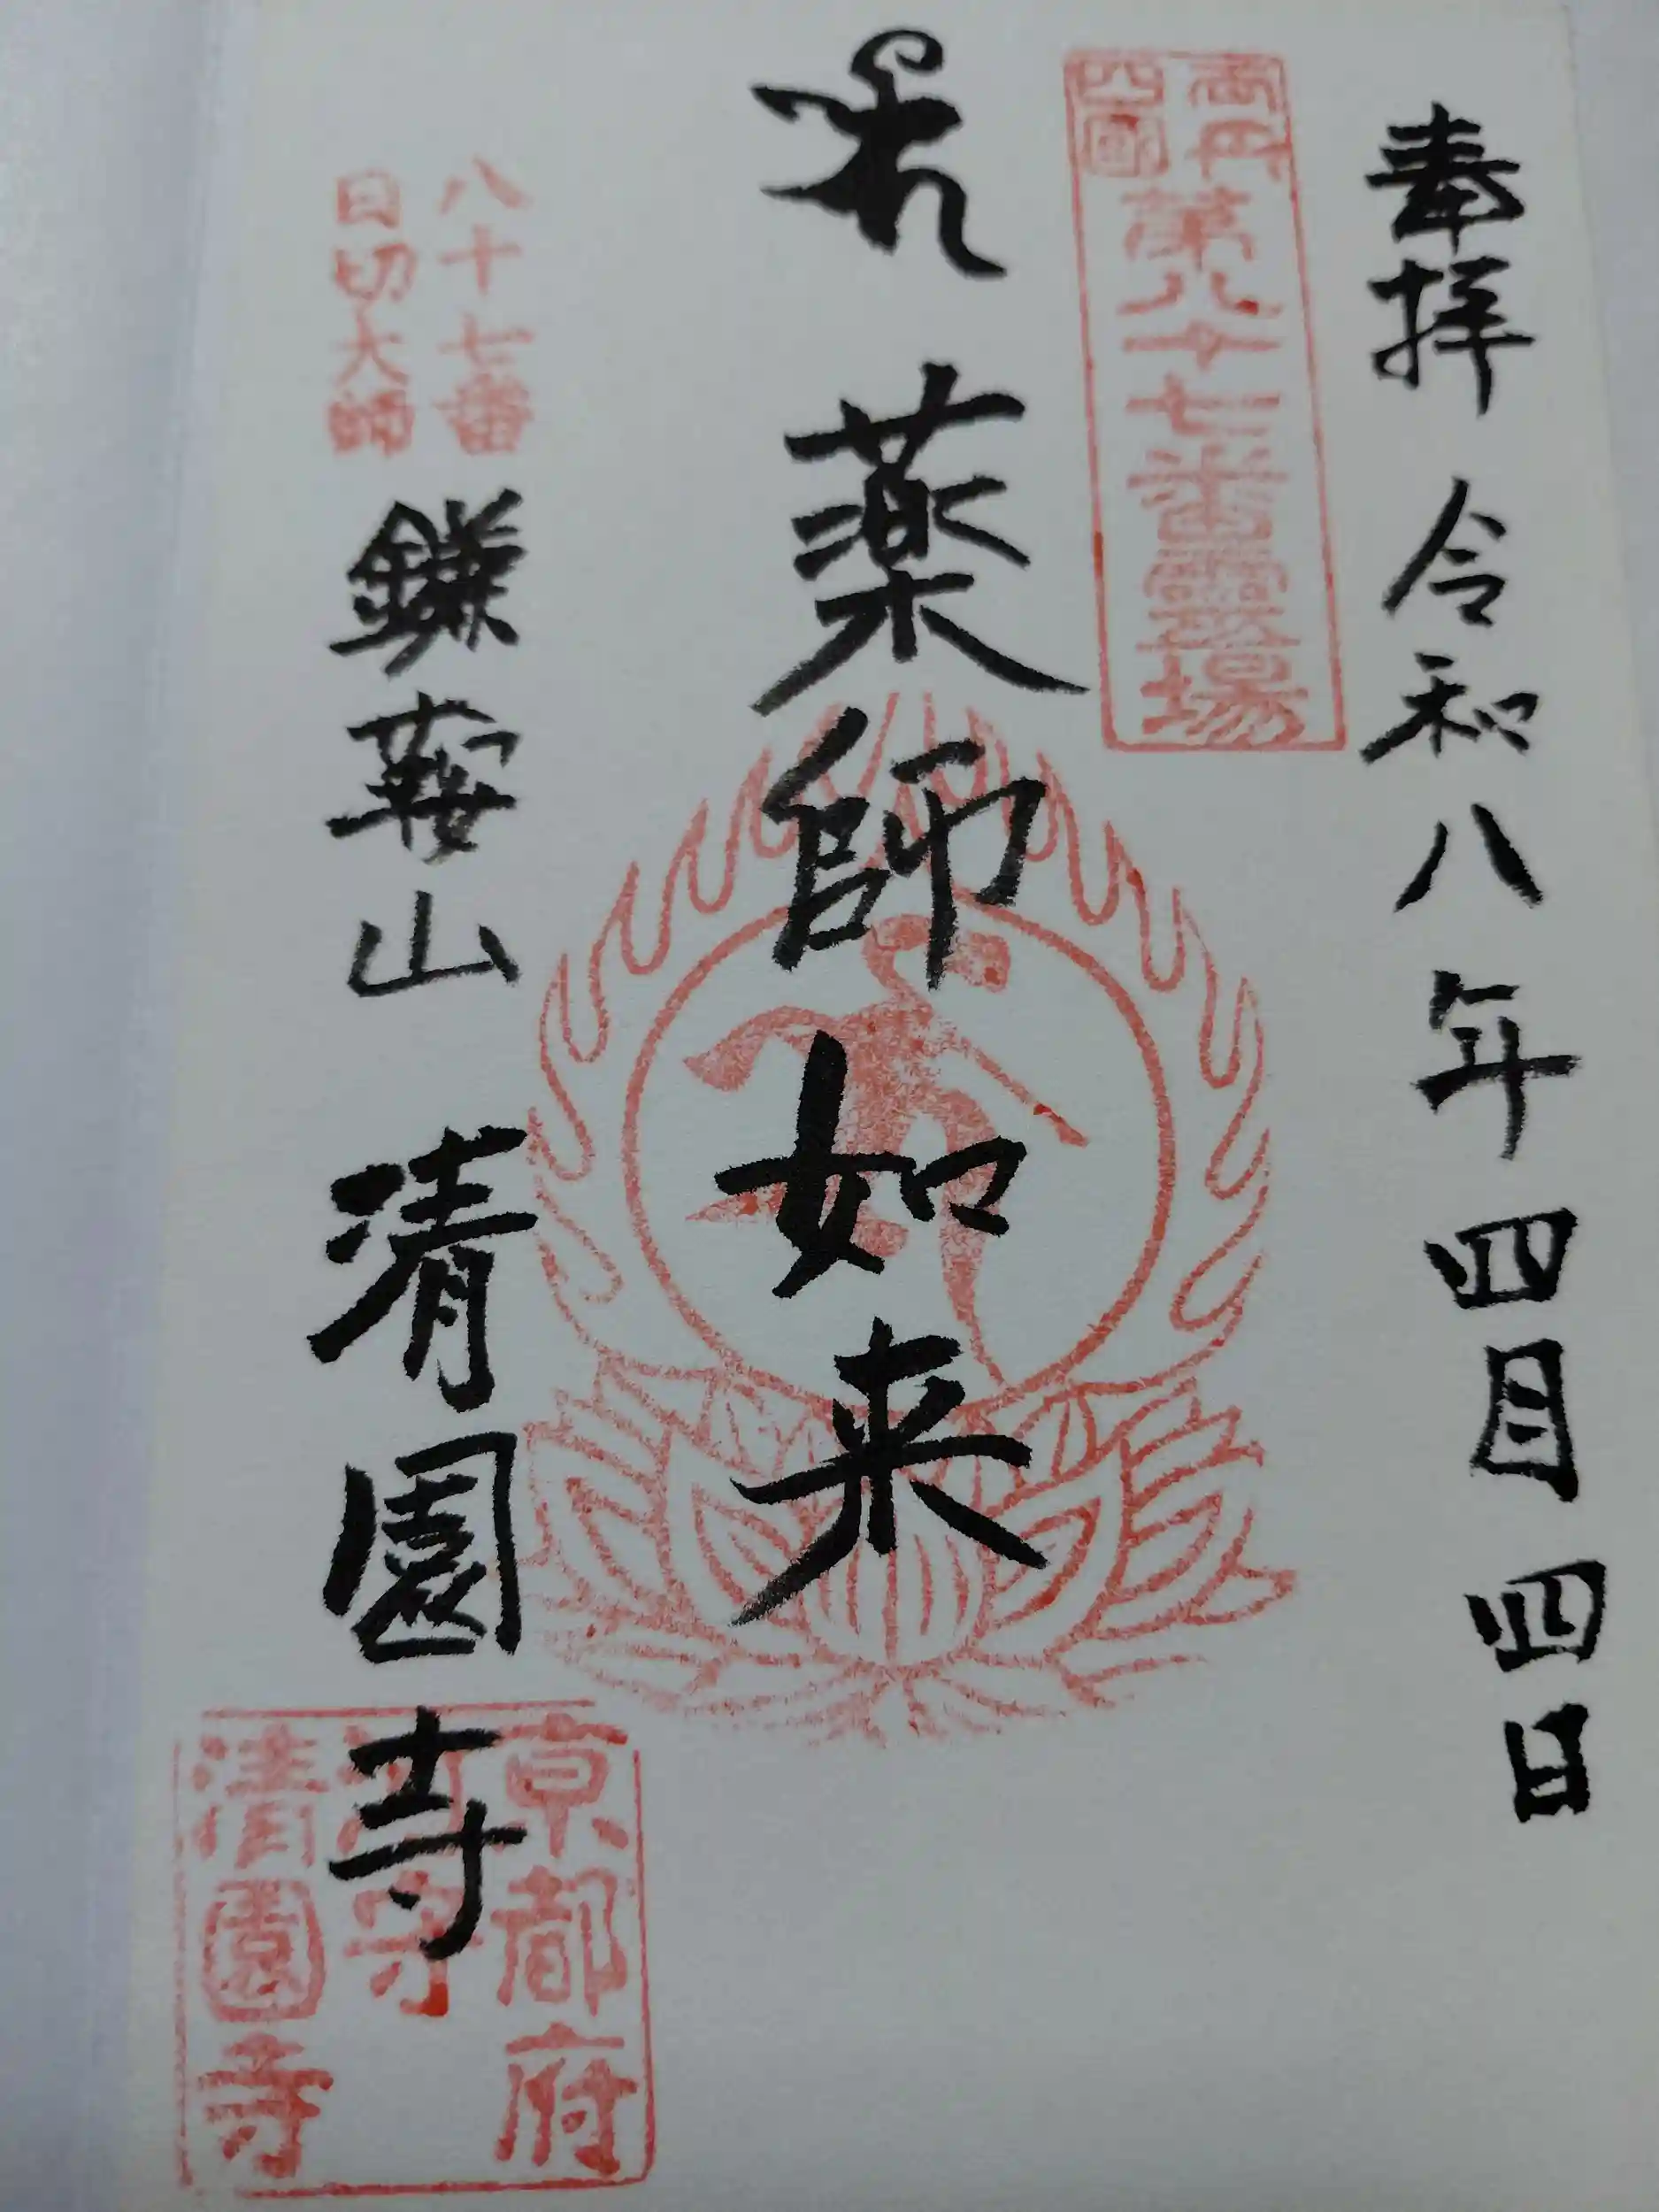 奉拝 令和八年四月四日
両丹
四国
第八十七番霊場
薬師如来
八十七番
日切大師
鎌鞍山 清園寺
京都府
清園寺